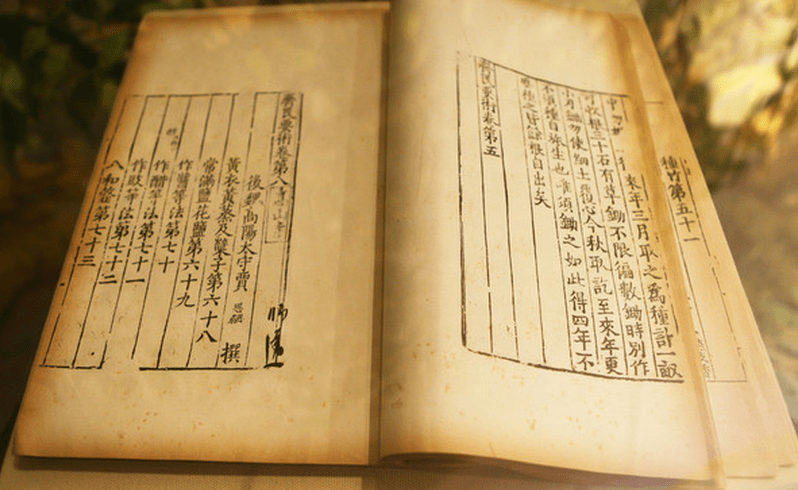 種竹第五十一
中勿
來年三月取之為種計一畝
收根三十石有草鋤不限徧數鋤時別作
小月鋤勿使細土覆心今秋取訖至來年更
不須種自旅生也唯須鋤之如此得四年不
要種之皆餘根自出矣
齊民要術卷第五
齊民要術卷第八
後魏高陽太守賈思勰撰
黃衣黃蒸及糵子第六十八
常滿鹽花鹽第六十九
作醬等法第七十
作酢等法第七十一
作豉等法第七十二
八和齏第七十三